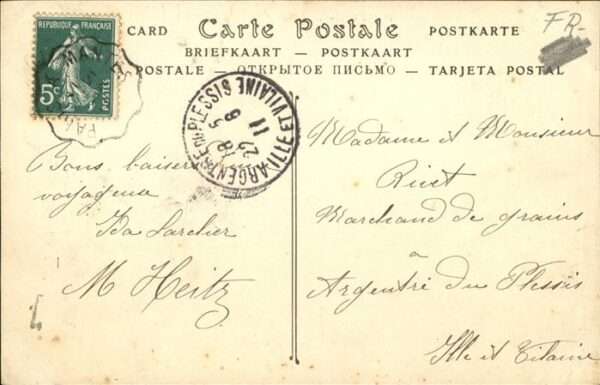 REPUBLIQUE FRANÇAISE
5c
POSTES
CARD Carte Postale POSTKARTE
BRIEFKAART — POSTKAART
POSTALE — ОТКРЫТОЕ ПИСЬМО — TARJETA POSTAL
FR-
ARGENTRÉ-DU-PLESSIS
ILLE ET VILAINE
18 5
27 9
11
Bons baisers
voyageuse
Ida Larcher
M Heitz
Madame et Monsieur
Rivet
Marchand de grains
à
Argentré du Plessis
Ille et Vilaine